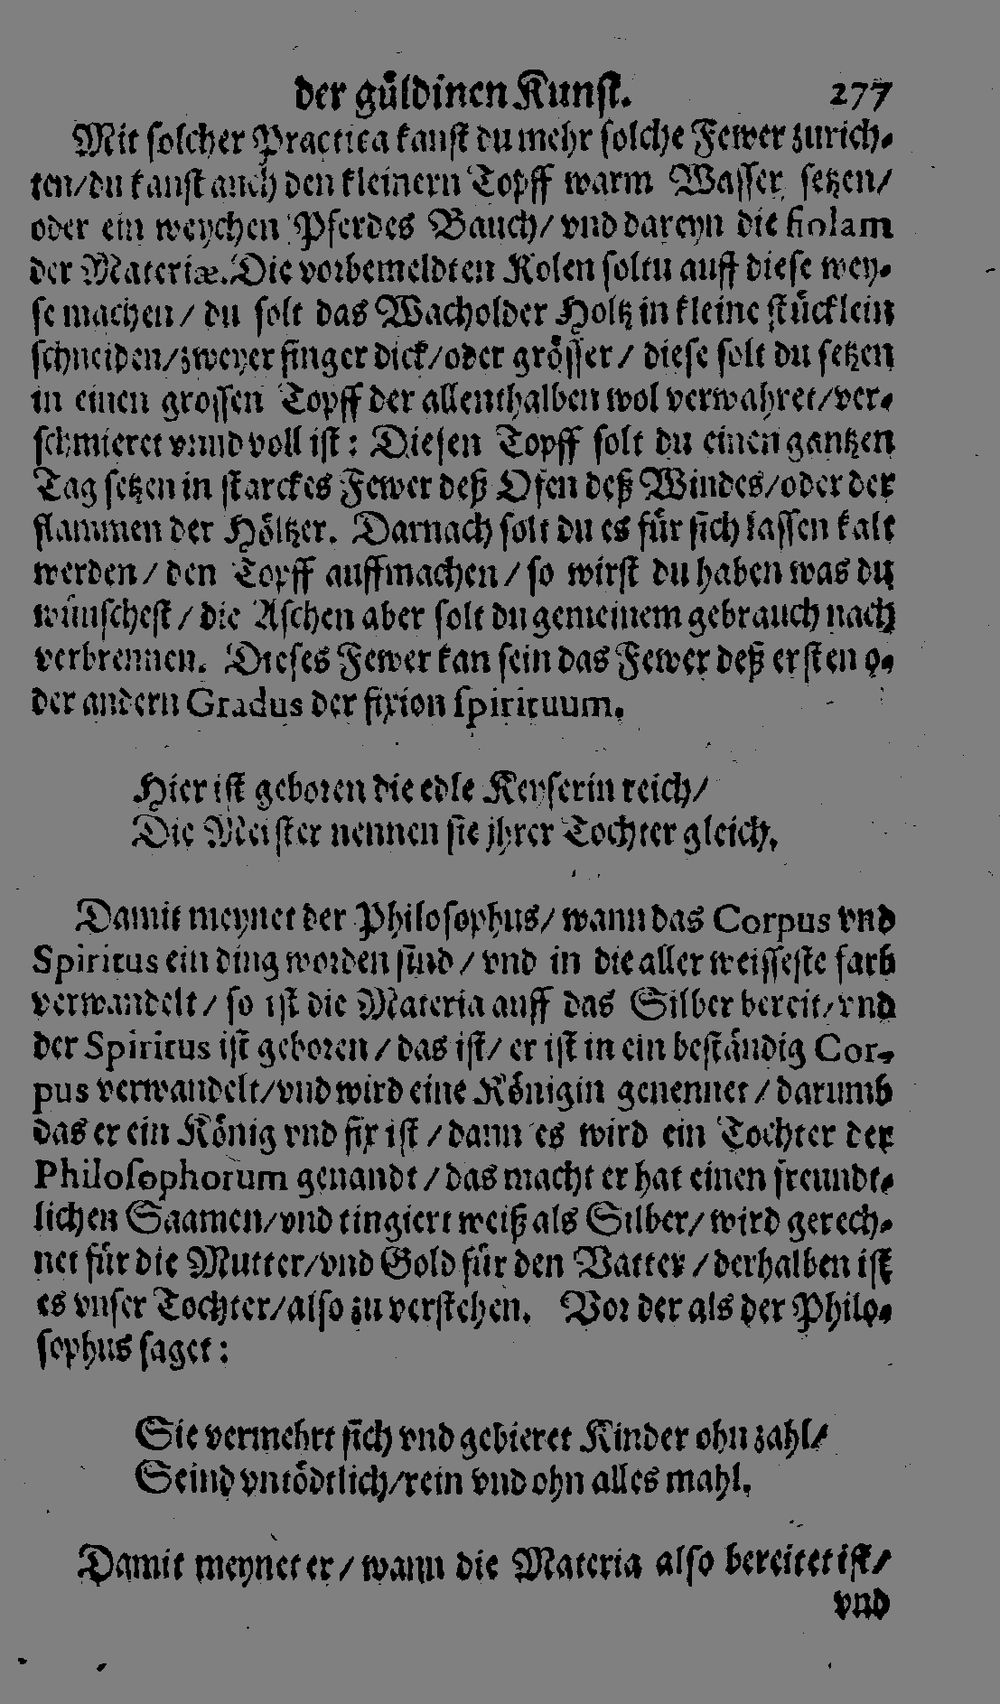 der güldinen Kunst. 277
Mit solcher Practica kanst du mehr solche Fewer zurich-
ten/du kanst auch den kleinern Topff warm Wasser setzen/
oder ein weychen Pferdes Bauch/ vnd dareyn die fiolam
der Materiæ. Die vorbemeldten Kolen soltu auff diese wey-
se machen/ du solt das Wacholder Holtz in kleine stücklein
schneiden/zweyer finger dick/oder grösser/ diese solt du setzen
in einen grossen Topff der allenthalben wol verwahret/ver-
schmieret vnnd voll ist: Diesen Topff solt du einen gantzen
Tag setzen in starckes Fewer deß Ofen deß Windes/oder der
flammen der Höltzer. Darnach solt du es für sich lassen kalt
werden/ den Topff auffmachen/ so wirst du haben was du
wünschest/ die Aschen aber solt du gemeinem gebrauch nach
verbrennen. Dieses Fewer kan sein das Fewer deß ersten o-
der andern Gradus der fixion spirituum.
Hier ist geboren die edle Keyserin reich/
Die Meister nennen sie jhrer Tochter gleich.
Damit meynet der Philosophus/ wann das Corpus vnd
Spiritus ein ding worden sind/ vnd in die aller weisseste farb
verwandelt/ so ist die Materia auff das Silber bereit/vnd
der Spiritus ist geboren/ das ist/ er ist in ein beständig Cor-
pus verwandelt/vnd wird eine Königin genennet/ darumb
das er ein König vnd fix ist/ dann es wird ein Tochter der
Philosophorum genandt/ das macht er hat einen freundt-
lichen Saamen/vnd tingiert weiß als Silber/ wird gerech-
net für die Mutter/vnd Gold für den Vatter/ derhalben ist
es vnser Tochter/also zu verstehen. Vor der als der Philo-
sophus saget:
Sie vermehrt sich vnd gebieret Kinder ohn zahl/
Seind vntödtlich/rein vnd ohn alles mahl.
Damit meynet er/ wann die Materia also bereitet ist/
vnd